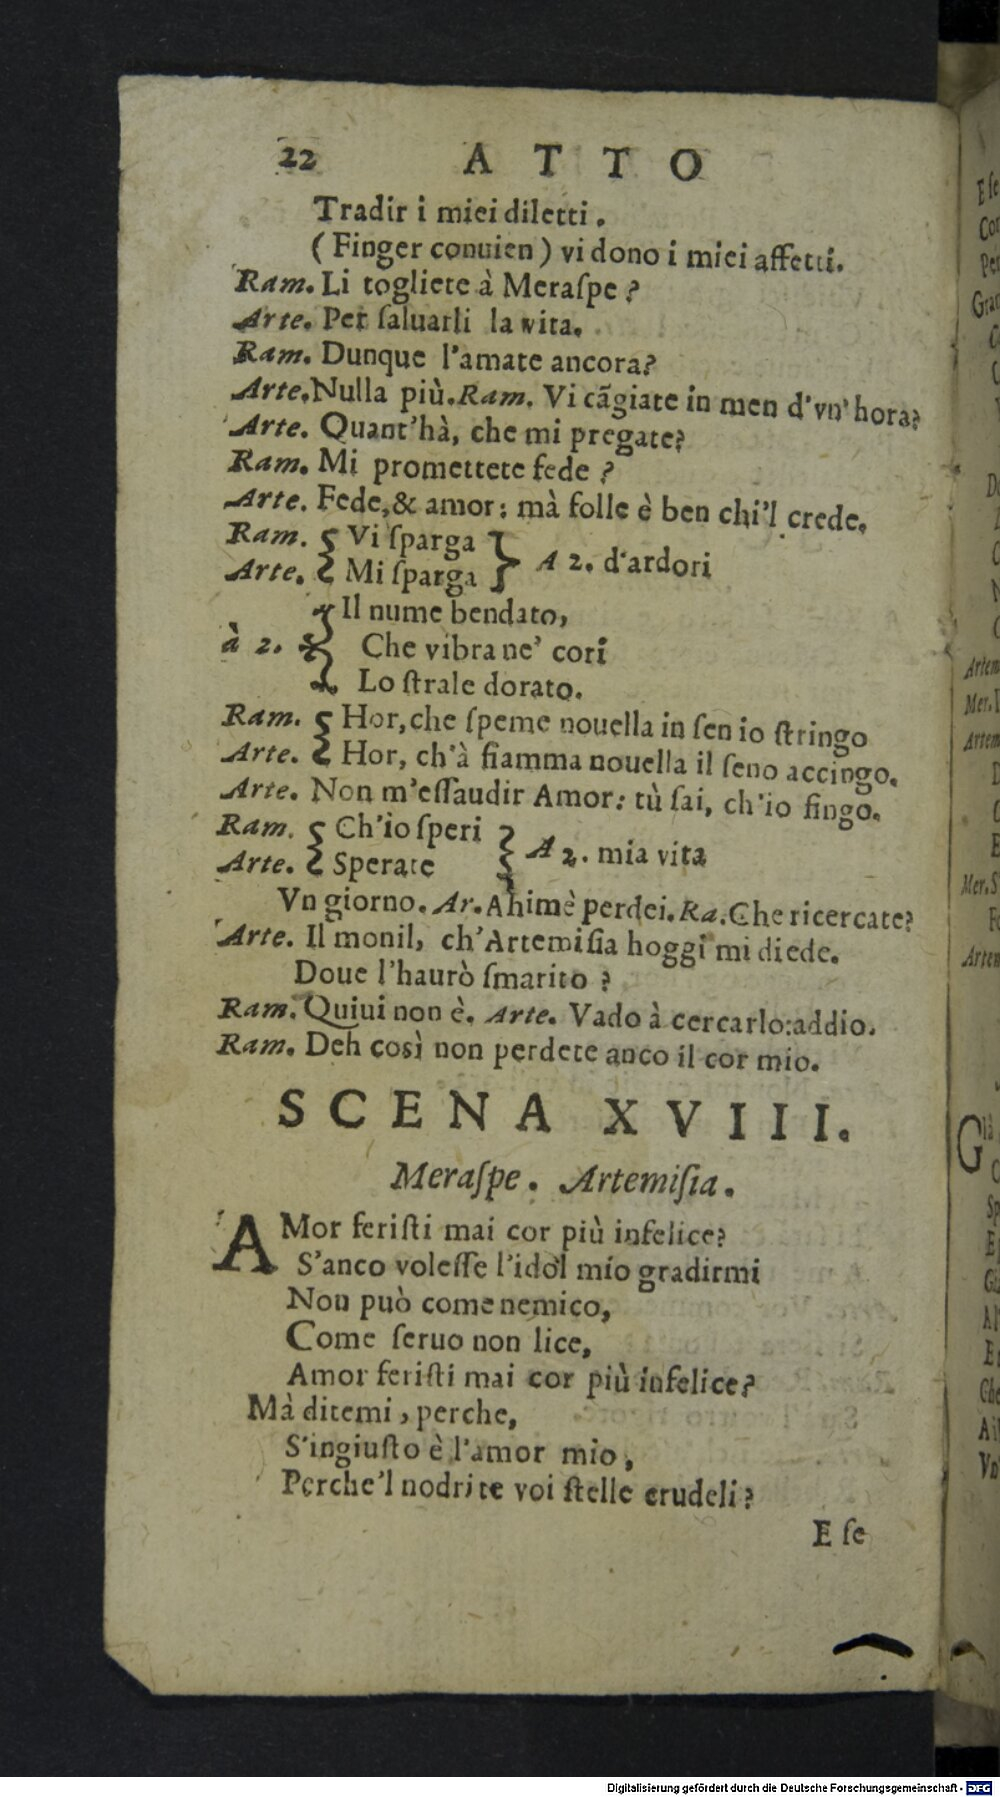 22 ATTO
Tradir i miei diletti.
(Finger conuien) vi dono i miei affetti.
Ram. Li togliete à Meraſpe?
Arte. Per ſaluarli la vita.
Ram. Dunque l'amate ancora?
Arte. Nulla più. Ram. Vi cãgiate in men d'vn' hora?
Arte. Quant'hà, che mi pregate?
Ram. Mi promettete fede?
Arte. Fede, & amor; mà folle è ben chi'l crede.
Ram. { Vi ſparga } A 2. d'ardori
Arte. { Mi ſparga }
à 2. { Il nume bendato,
Che vibra ne' cori
Lo ſtrale dorato.
Ram. { Hor, che ſpeme nouella in ſen io ſtringo
Arte. { Hor, ch'à fiamma nouella il ſeno accingo.
Arte. Non m'eſſaudir Amor: tù ſai, ch'io fingo.
Ram. { Ch'io ſperi } A 2. mia vita
Arte. { Sperate }
Vn giorno. Ar. Ahimè perdei. Ra. Che ricercate?
Arte. Il monil, ch'Artemiſia hoggi mi diede.
Doue l'haurò ſmarito?
Ram. Quiui non è. Arte. Vado à cercarlo: addio.
Ram. Deh così non perdete anco il cor mio.
SCENA XVIII.
Meraſpe. Artemiſia.
AMor feriſti mai cor più infelice?
S'anco voleſſe l'idol mio gradirmi
Non può come nemico,
Come ſeruo non lice,
Amor feriſti mai cor più infelice?
Mà ditemi, perche,
S'ingiuſto è l'amor mio,
Perche'l nodrite voi ſtelle crudeli?
E ſe
Digitalisierung gefördert durch die Deutsche Forschungsgemeinschaft - DFG